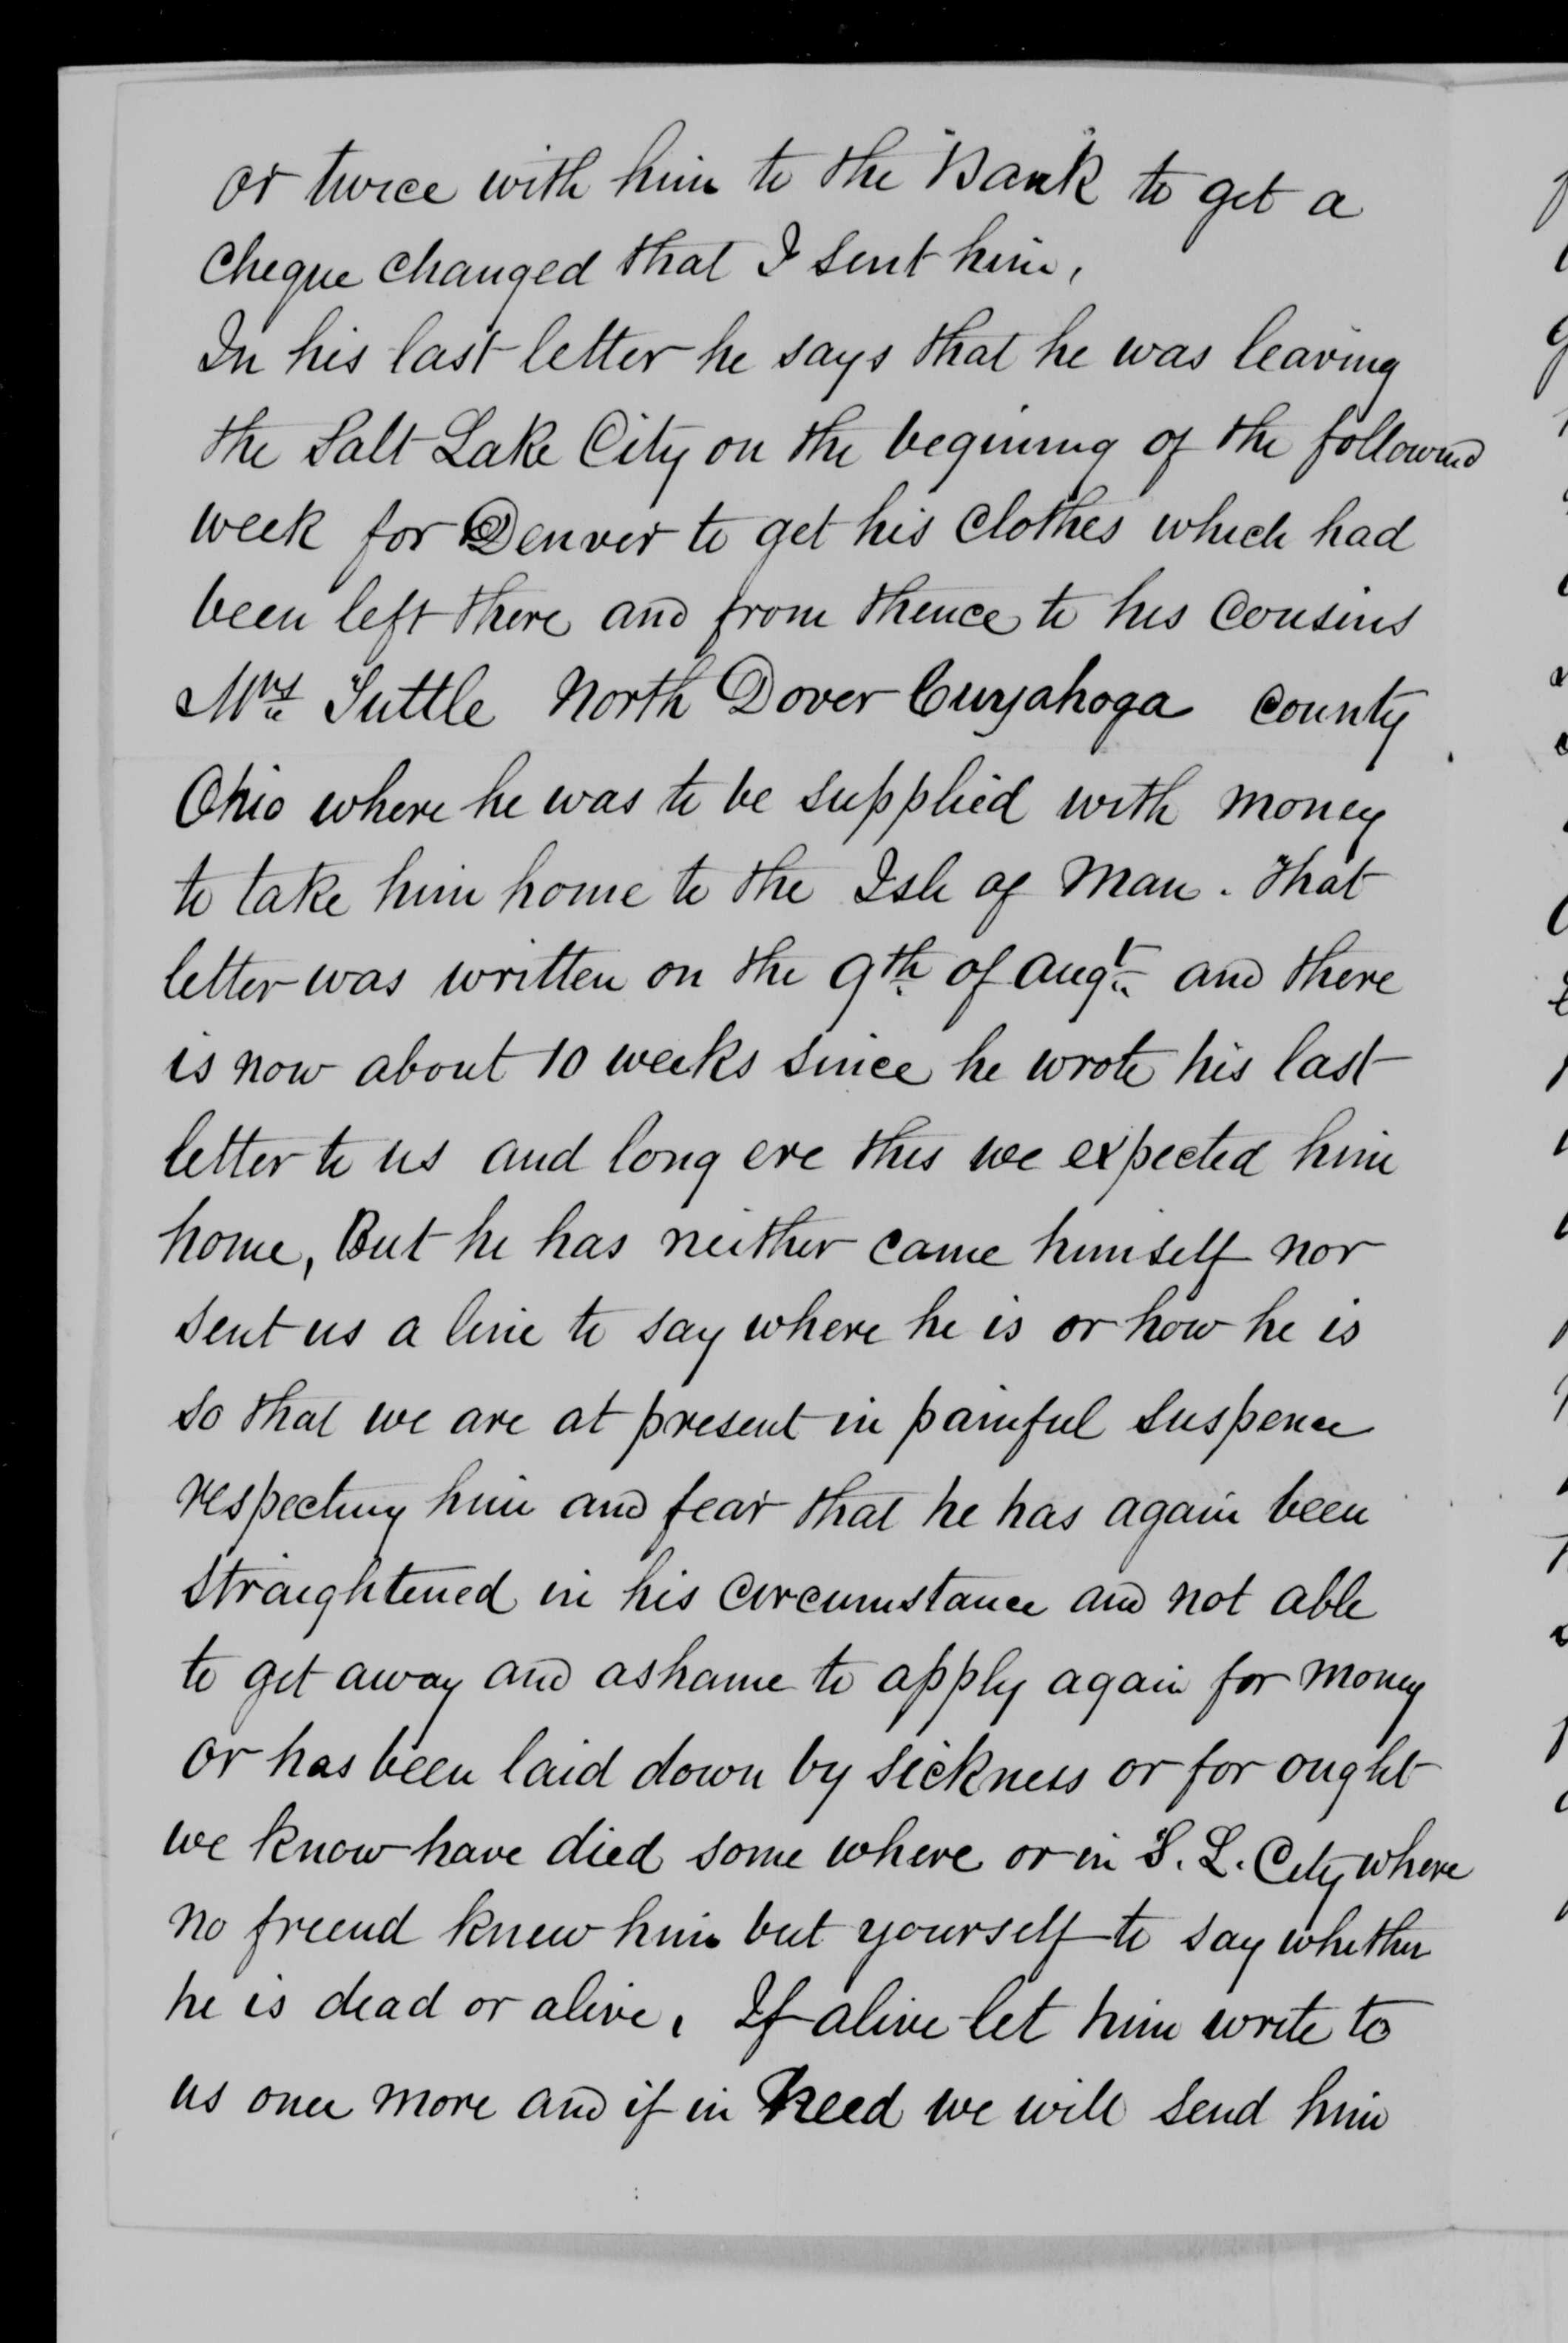 or twice with him to the Bank to get a
Cheque changed that I sent him,
In his last letter he says that he was leaving
the Salt Lake City on the begining of the following
week for Denver to get his Clothes which had
been left there and from thence to his Cousins
Mrs Tuttle North Dover Cuyahoga County
Ohio where he was to be supplied with money
to take him home to the Isle of Man. That
letter was written on the 9th of Augt and there
is now about 10 weeks since he wrote his last
letter to us and long ere this we expected him
home, But he has neither came himself nor
sent us a line to say where he is or how he is
so that we are at present in painful suspence
respecting him and fear that he has again been
straightened in his circumstance and not able
to get away and ashame to apply again for money
or has been laid down by sickness or for ought
we know have died some where or in S. L. City where
no freend knew him but yourself to say whether
he is dead or alive, If alive let him write to
us once more and if in Need we will send him